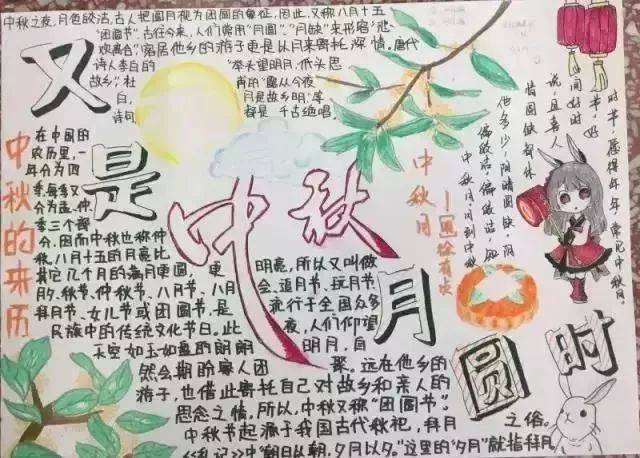 中秋之夜,月色皎洁,古人把圆月视为团圆的象征,因此,又称八月十五
"团圆节"。古往今来,人们常用"月圆""月缺"来形容"悲
欢离合",客居他乡的游子更是以月来寄托深情。唐代
诗人李白的 "举头望明月,低头思
故乡",杜甫的"露从今夜
白, 月是故乡明"等
诗句 都是千古绝唱。
又
是
中秋
月
圆
时
中秋的来历
在中国的
农历里,一
年分为四
季,每季又
分为孟、仲、
季三个部
分,因而中秋也称仲
秋。八月十五的月亮比
其它几个月的满月更圆, 更 明亮,所以又叫做
月夕、秋节、仲秋节、八月节、八月 会、追月节、玩月节、
拜月节、女儿节或团圆节,是 流行于全国众多
民族中的传统文化节日。此 夜,人们仰望
天空如玉如盘的朗朗 明月,自
然会期盼家人团 聚。远在他乡的
游子,也借此寄托自己对故乡和亲人的
思念之情。所以,中秋又称"团圆节"。
中秋节起源于我国古代秋祀,拜月 之俗。
《礼记》中"朝日以朝,夕月以夕。"这里的"夕月"就指拜月
中秋月
徐有贞
中秋月,月到中秋
偏皎洁。偏皎洁,知
他多少,阴晴圆缺。阴
情圆缺都休
说,且喜人
间好时
节。好
时节,愿得年年,常见中秋月。